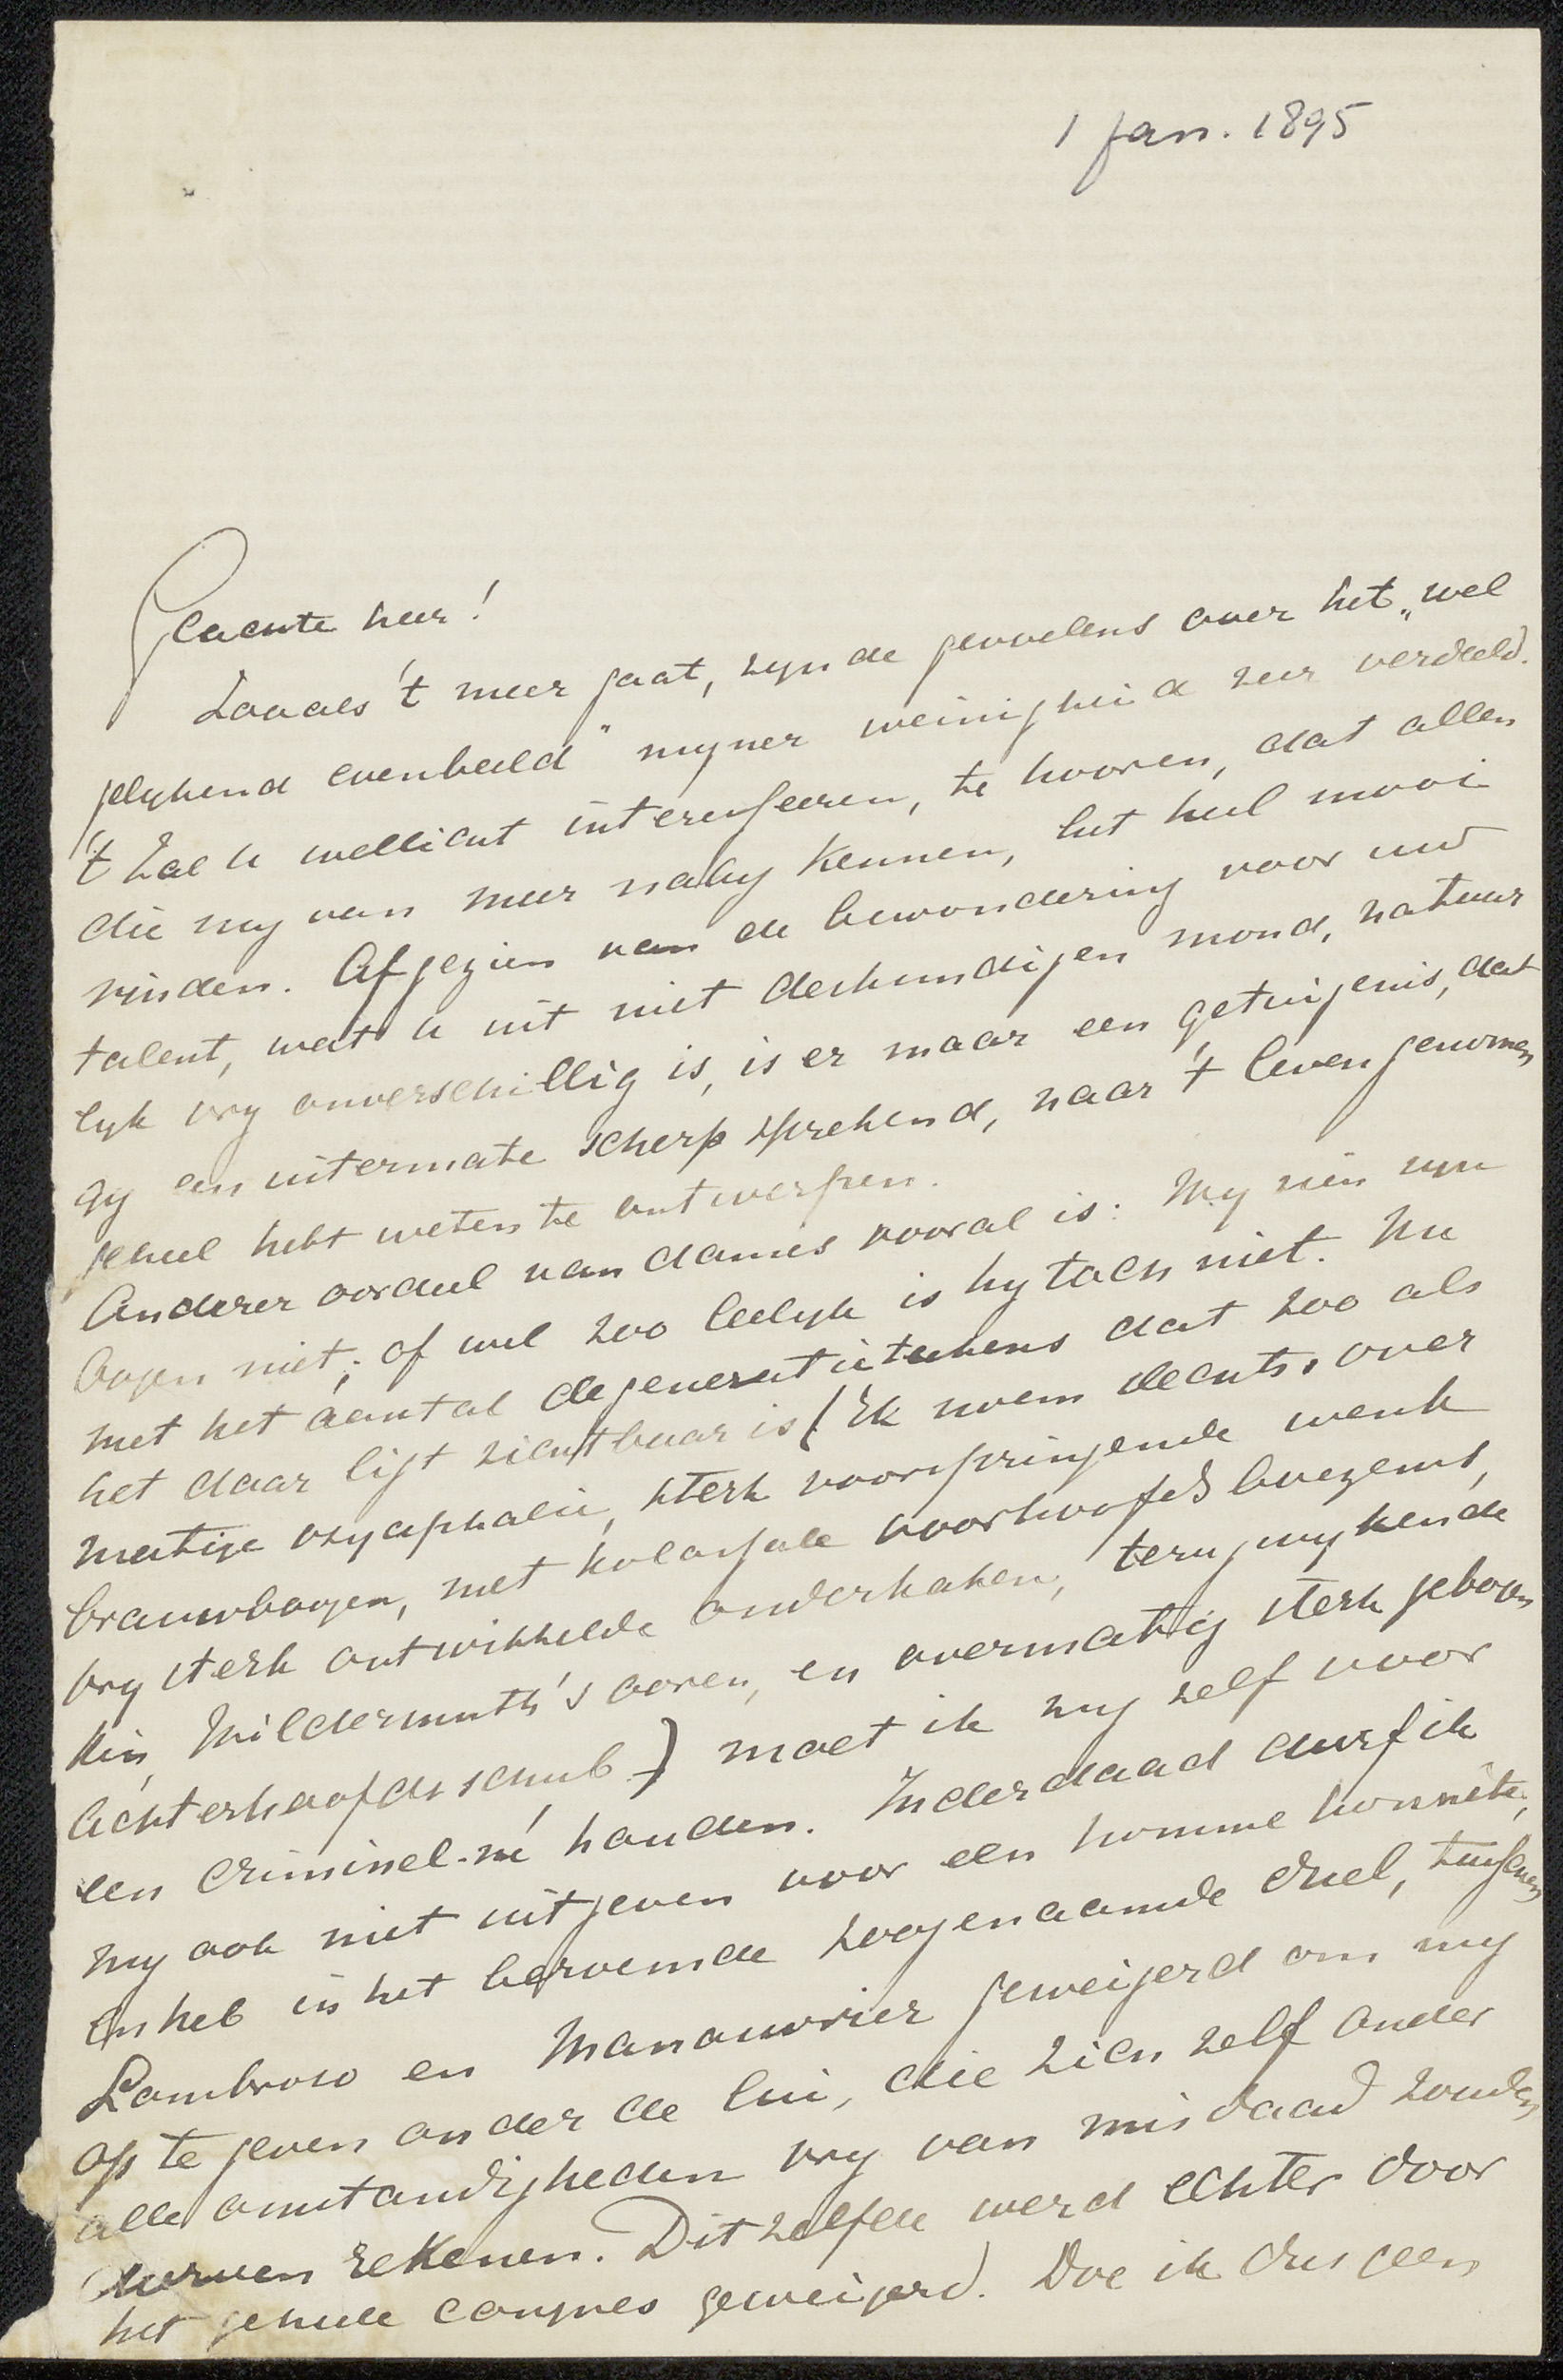 1 Jan. 1895
Geachte heer!
Zooals 't meer gaat, zyn de gevoelens over het „wel
gelykend evenbeeld" myner weinigheid zeer verdeeld.
't Zal u wellicht interesseeren, te hooren, dat allen
die my van meer naby kennen, het heel mooi
vinden. Afgezien van de bewondering voor uw
talent, wat u uit niet deskundigen mond, natuur
lyk vry onverschillig is, is er maar een getuigenis, dat
gy een uitermate scherp sprekend, naar 't leven genomen
geheel hebt weten te ontwerpen.
Anderer oordeel van dames vooral is: My zien zyn
oogen niet; of wel zoo leelyk is hy toch niet. Nu
met het aantal degeneratieteekens dat zoo als
het daar ligt zichtbaar is (Ik noem slechts, over
matige oxycephalie, sterk voorspringende wenk
brauwboogen, met kolossale voorhoofdsboezems,
vry sterk ontwikkelde onderkaken, terugwykende
kin, Wildermuth's ooren, en overmatig sterk gebogen
achterhoofdsschub) moet ik my zelf voor
een criminel-né houden. Inderdaad durf ik
my ook niet uitgeven voor een homme honnête,
en heb in het beroemde zoogenaamde duel, tusschen
Lombroso en Manouvrier geweigerd om my
op te geven onder de lui, die zich zelf onder
alle omstandigheden vry van misdaad zouden
durven rekenen. Ditzelfde werd echter door
het geheele congres geweigerd. Doe ik dus geen